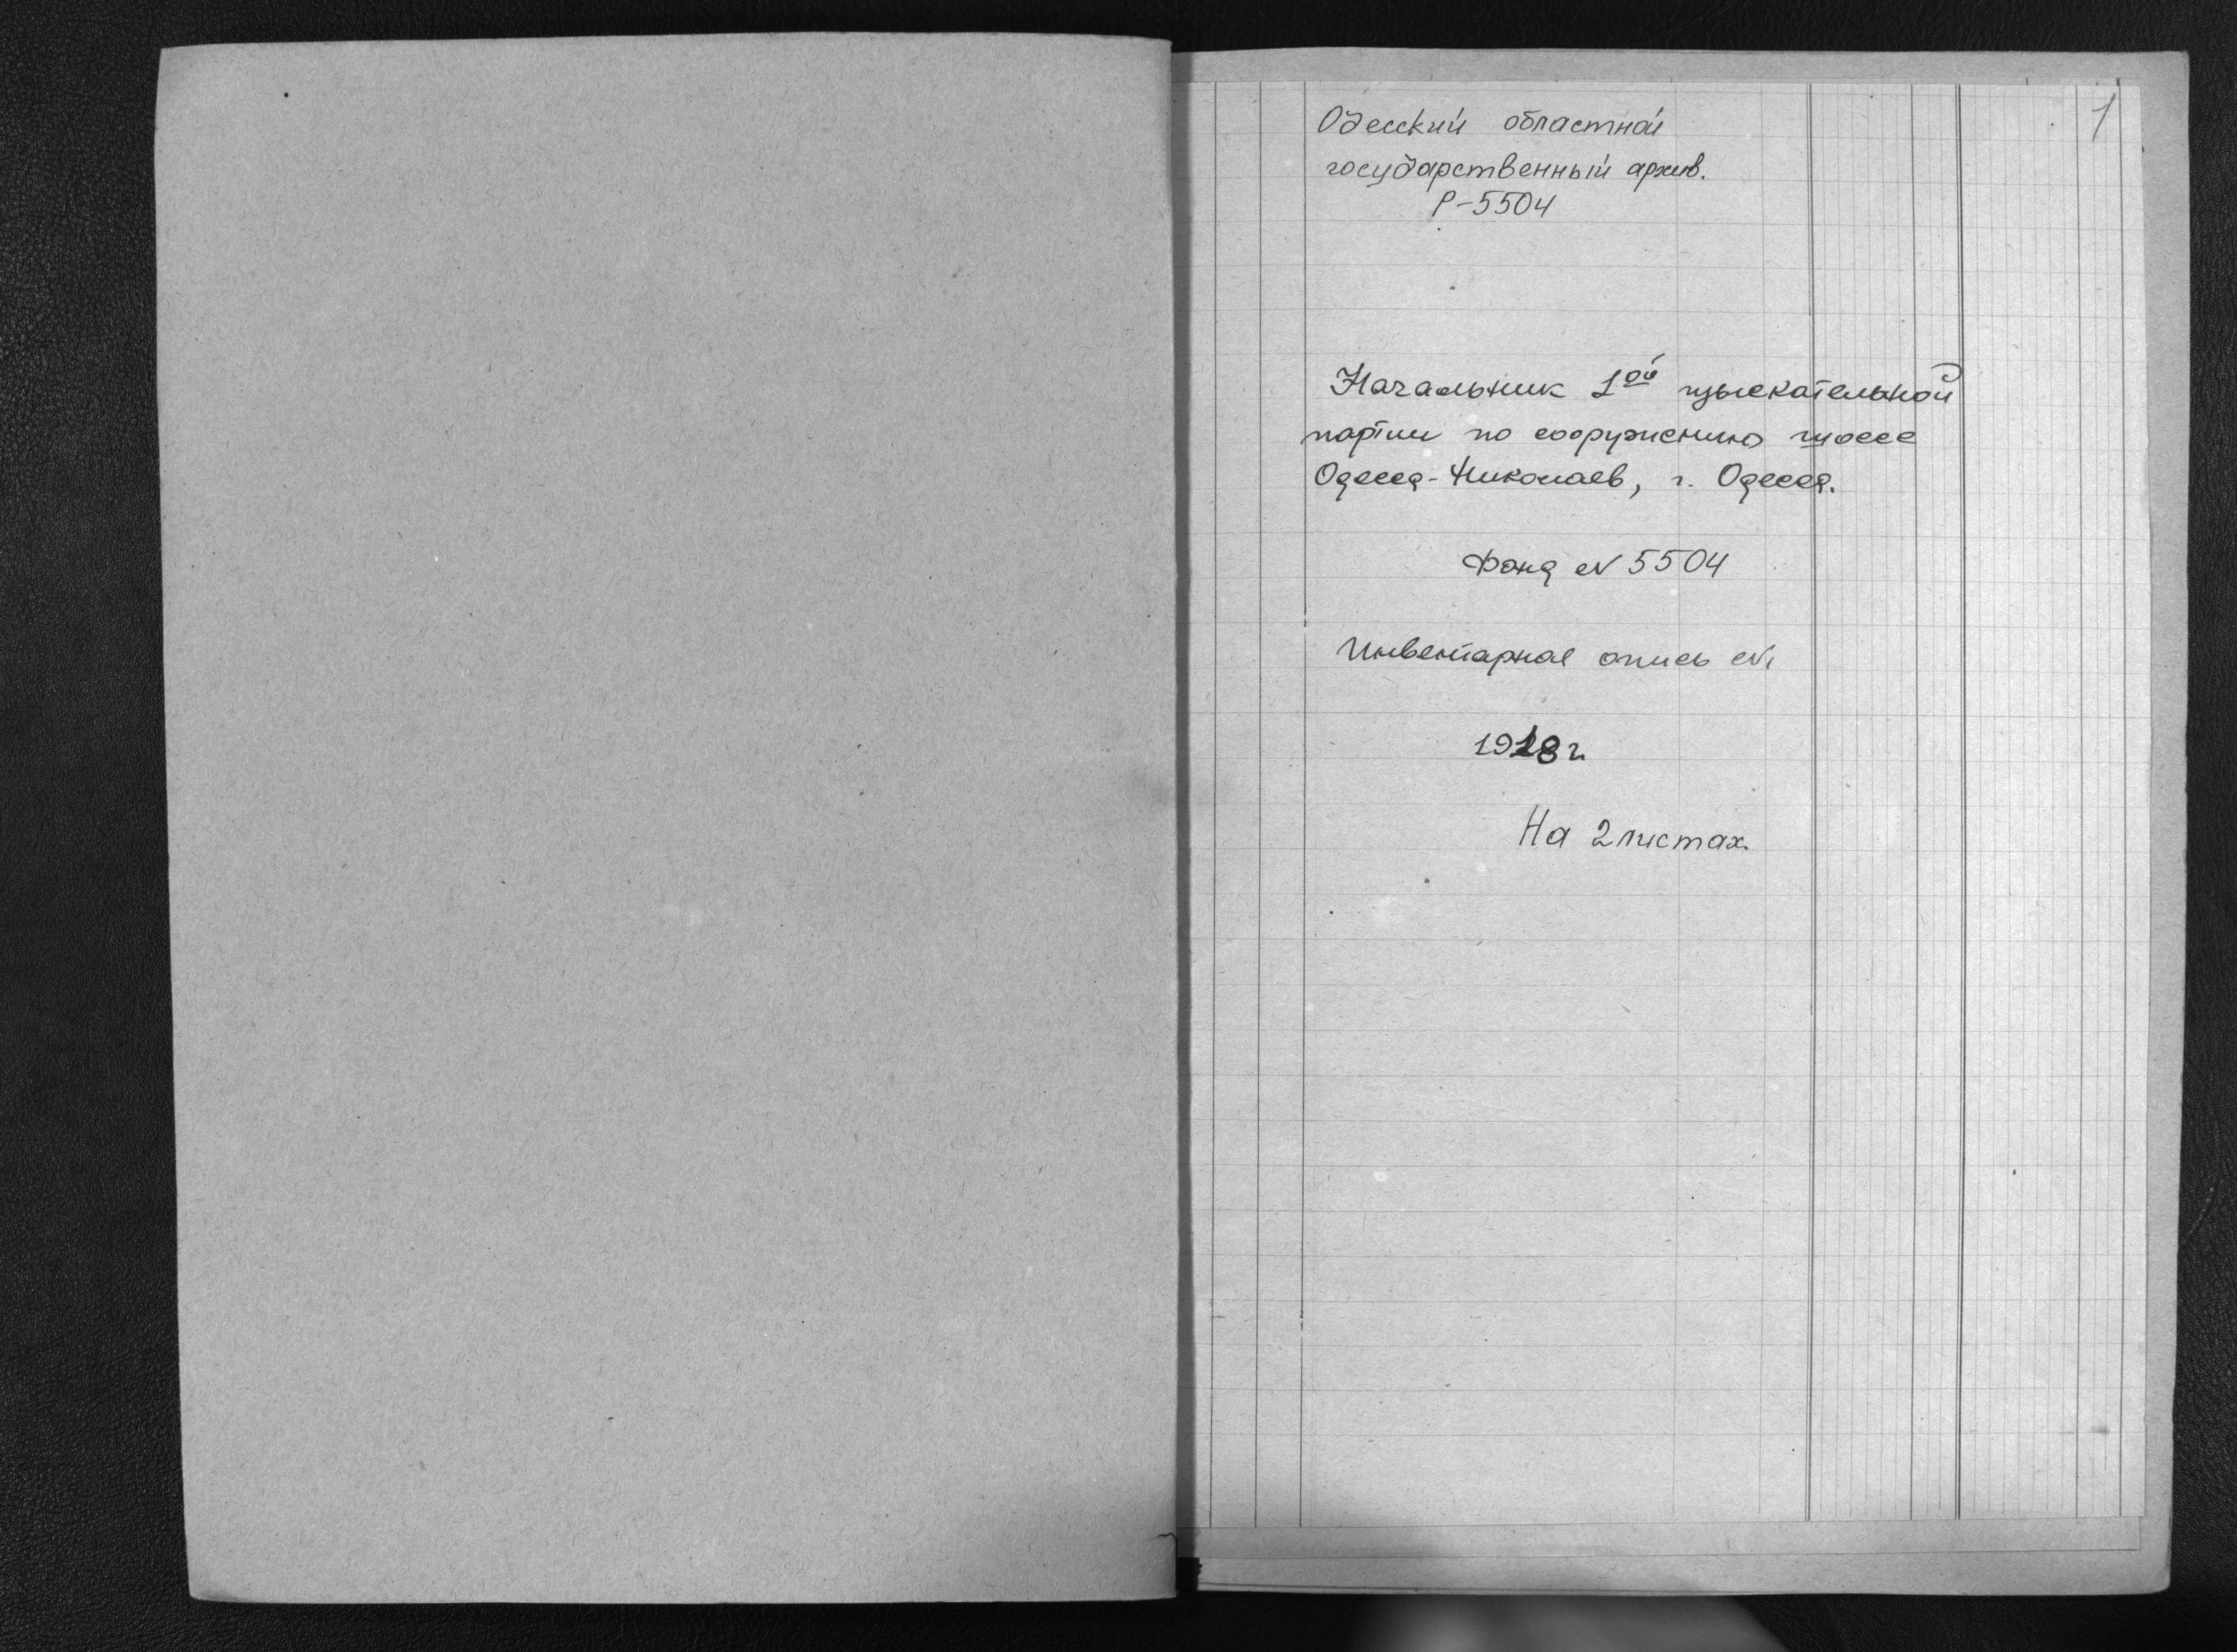 1
Одесский областной
государственный архив.
Р-5504
Начальник 1ой изыскательной
партии по сооружению шоссе
Одесса-Николаев, г. Одесса.
Фонд № 5504
Инвентарная опись №1
1918 г.
На 2 листах.